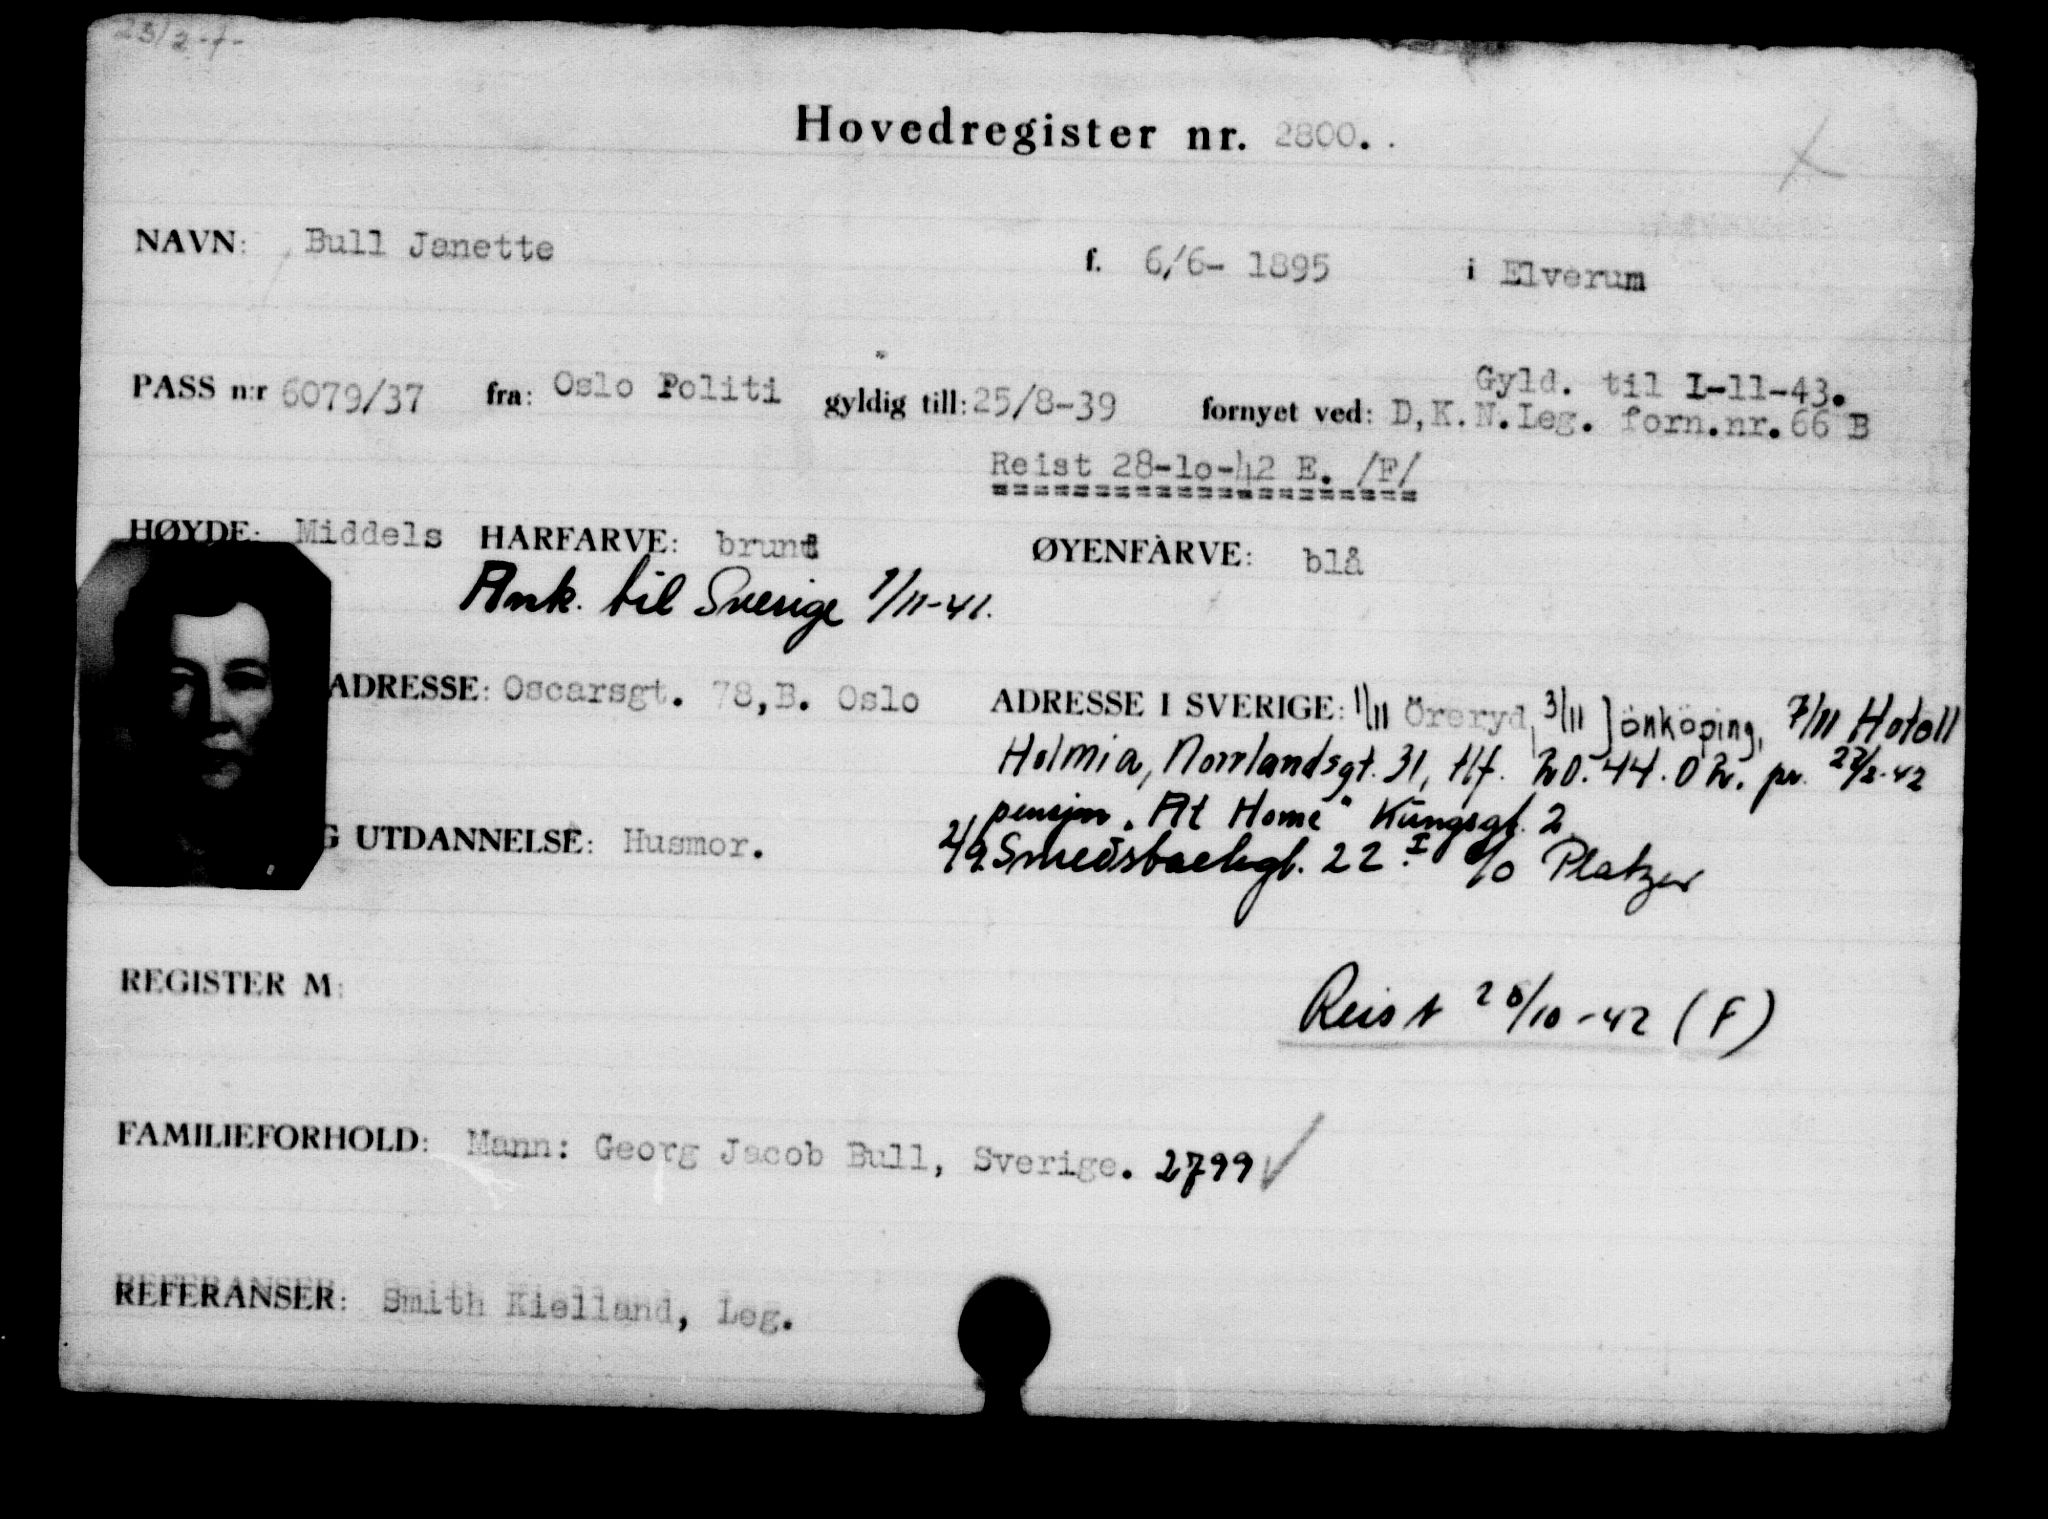 23/2-7-
Hovedregister nr. 2800..
NAVN: Bull Janette f. 6/6- 1895 i Elverum
Gyld. til I-11-43.
PASS n:r 6079/37 fra: Oslo Politi gyldig till: 25/8-39 fornyet ved: D,K.N.Leg. forn.nr.66 B
Reist 28-1o-42 E. /F/
HØYDE: Middels HÅRFARVE: brunt ØYENFARVE: blå
Ank. til Sverige 1/11-41.
ADRESSE: Oscarsgt. 78,B. Oslo ADRESSE I SVERIGE: 1/11 Öreryd, 3/11 Jönköping, 7/11 Hotell
Holmia, Norrlandsgt. 31, tlf. 20.44.02. pr. 22/2-42
pensjon "At Home" Kungsgt. 2
G UTDANNELSE: Husmor. 2/9. Smedsbackgt. 22 I c/o Platzer
REGISTER M:
Reist 28/10-42 (F)
FAMILIEFORHOLD: Mann: Georg Jacob Bull, Sverige. 2799
REFERANSER: Smith Kielland, Leg.